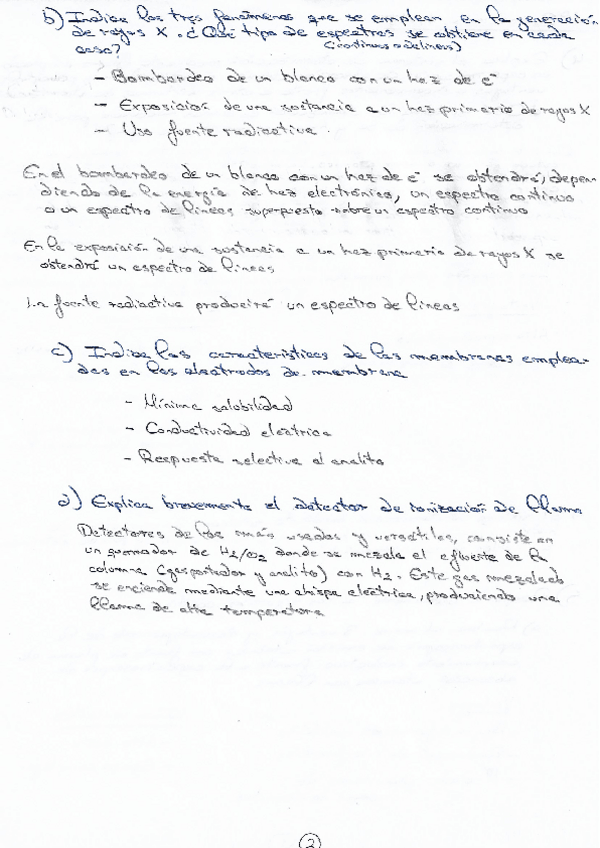 b) Indica los tres fenómenos que se emplean en la generación
de rayos X. ¿Qué tipo de espectros se obtiene en cada
caso? (continuos o de líneas)
- Bombardeo de un blanco con un haz de e⁻
- Exposición de una sustancia a un haz primario de rayos X
- Uso fuente radiactiva.
En el bombardeo de un blanco con un haz de e⁻ se obtendrá, depen-
diendo de la energía de haz electrónico, un espectro continuo
o un espectro de líneas superpuesto sobre un espectro continuo
En la exposición de una sustancia a un haz primario de rayos X se
obtendrá un espectro de líneas
La fuente radiactiva producirá un espectro de líneas
c) Indica las características de las membranas emplea-
das en los electrodos de membrana
- Mínima solubilidad
- Conductividad eléctrica
- Respuesta selectiva al analito
d) Explica brevemente el detector de ionización de llama
Detectores de los más usados y versátiles, consiste en
un quemador de H₂/O₂ donde se mezcla el efluente de la
columna (gas portador y analito) con H₂. Este gas mezclado
se enciende mediante una chispa eléctrica, produciendo una
llama de alta temperatura
2